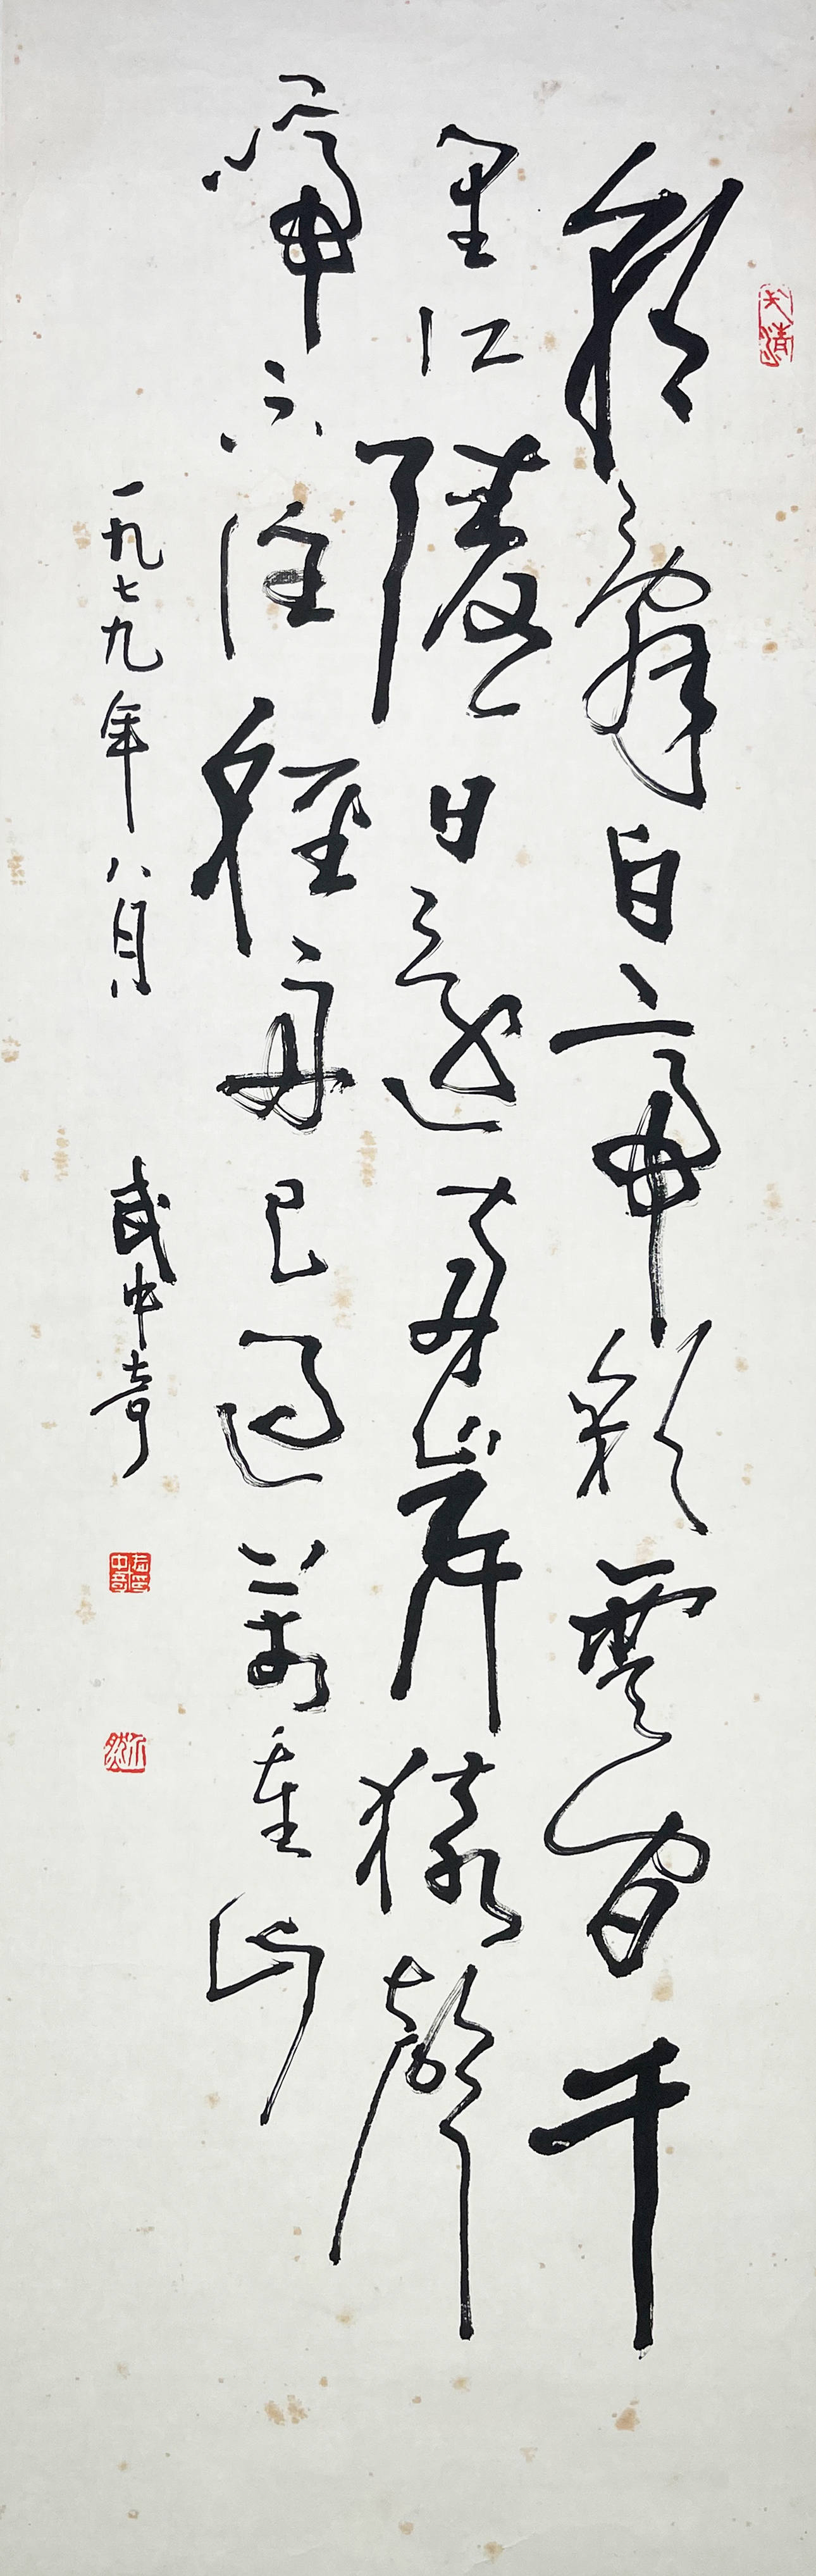 朝辭白帝彩雲間千
里江陵一日還兩岸猿聲
啼不住輕舟已過萬重山
一九七九年八月 武中奇